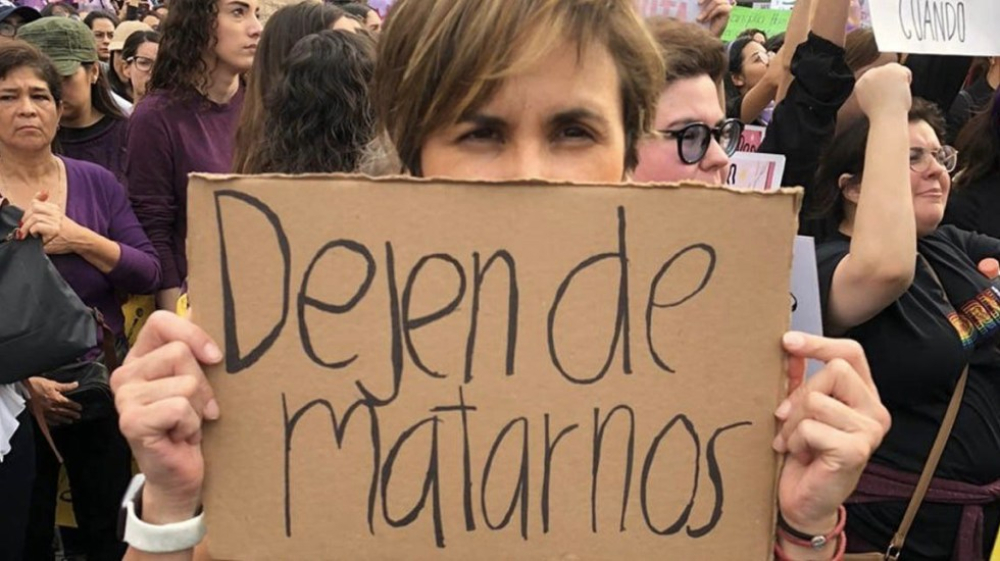 Dejen de
matarnos
CUANDO